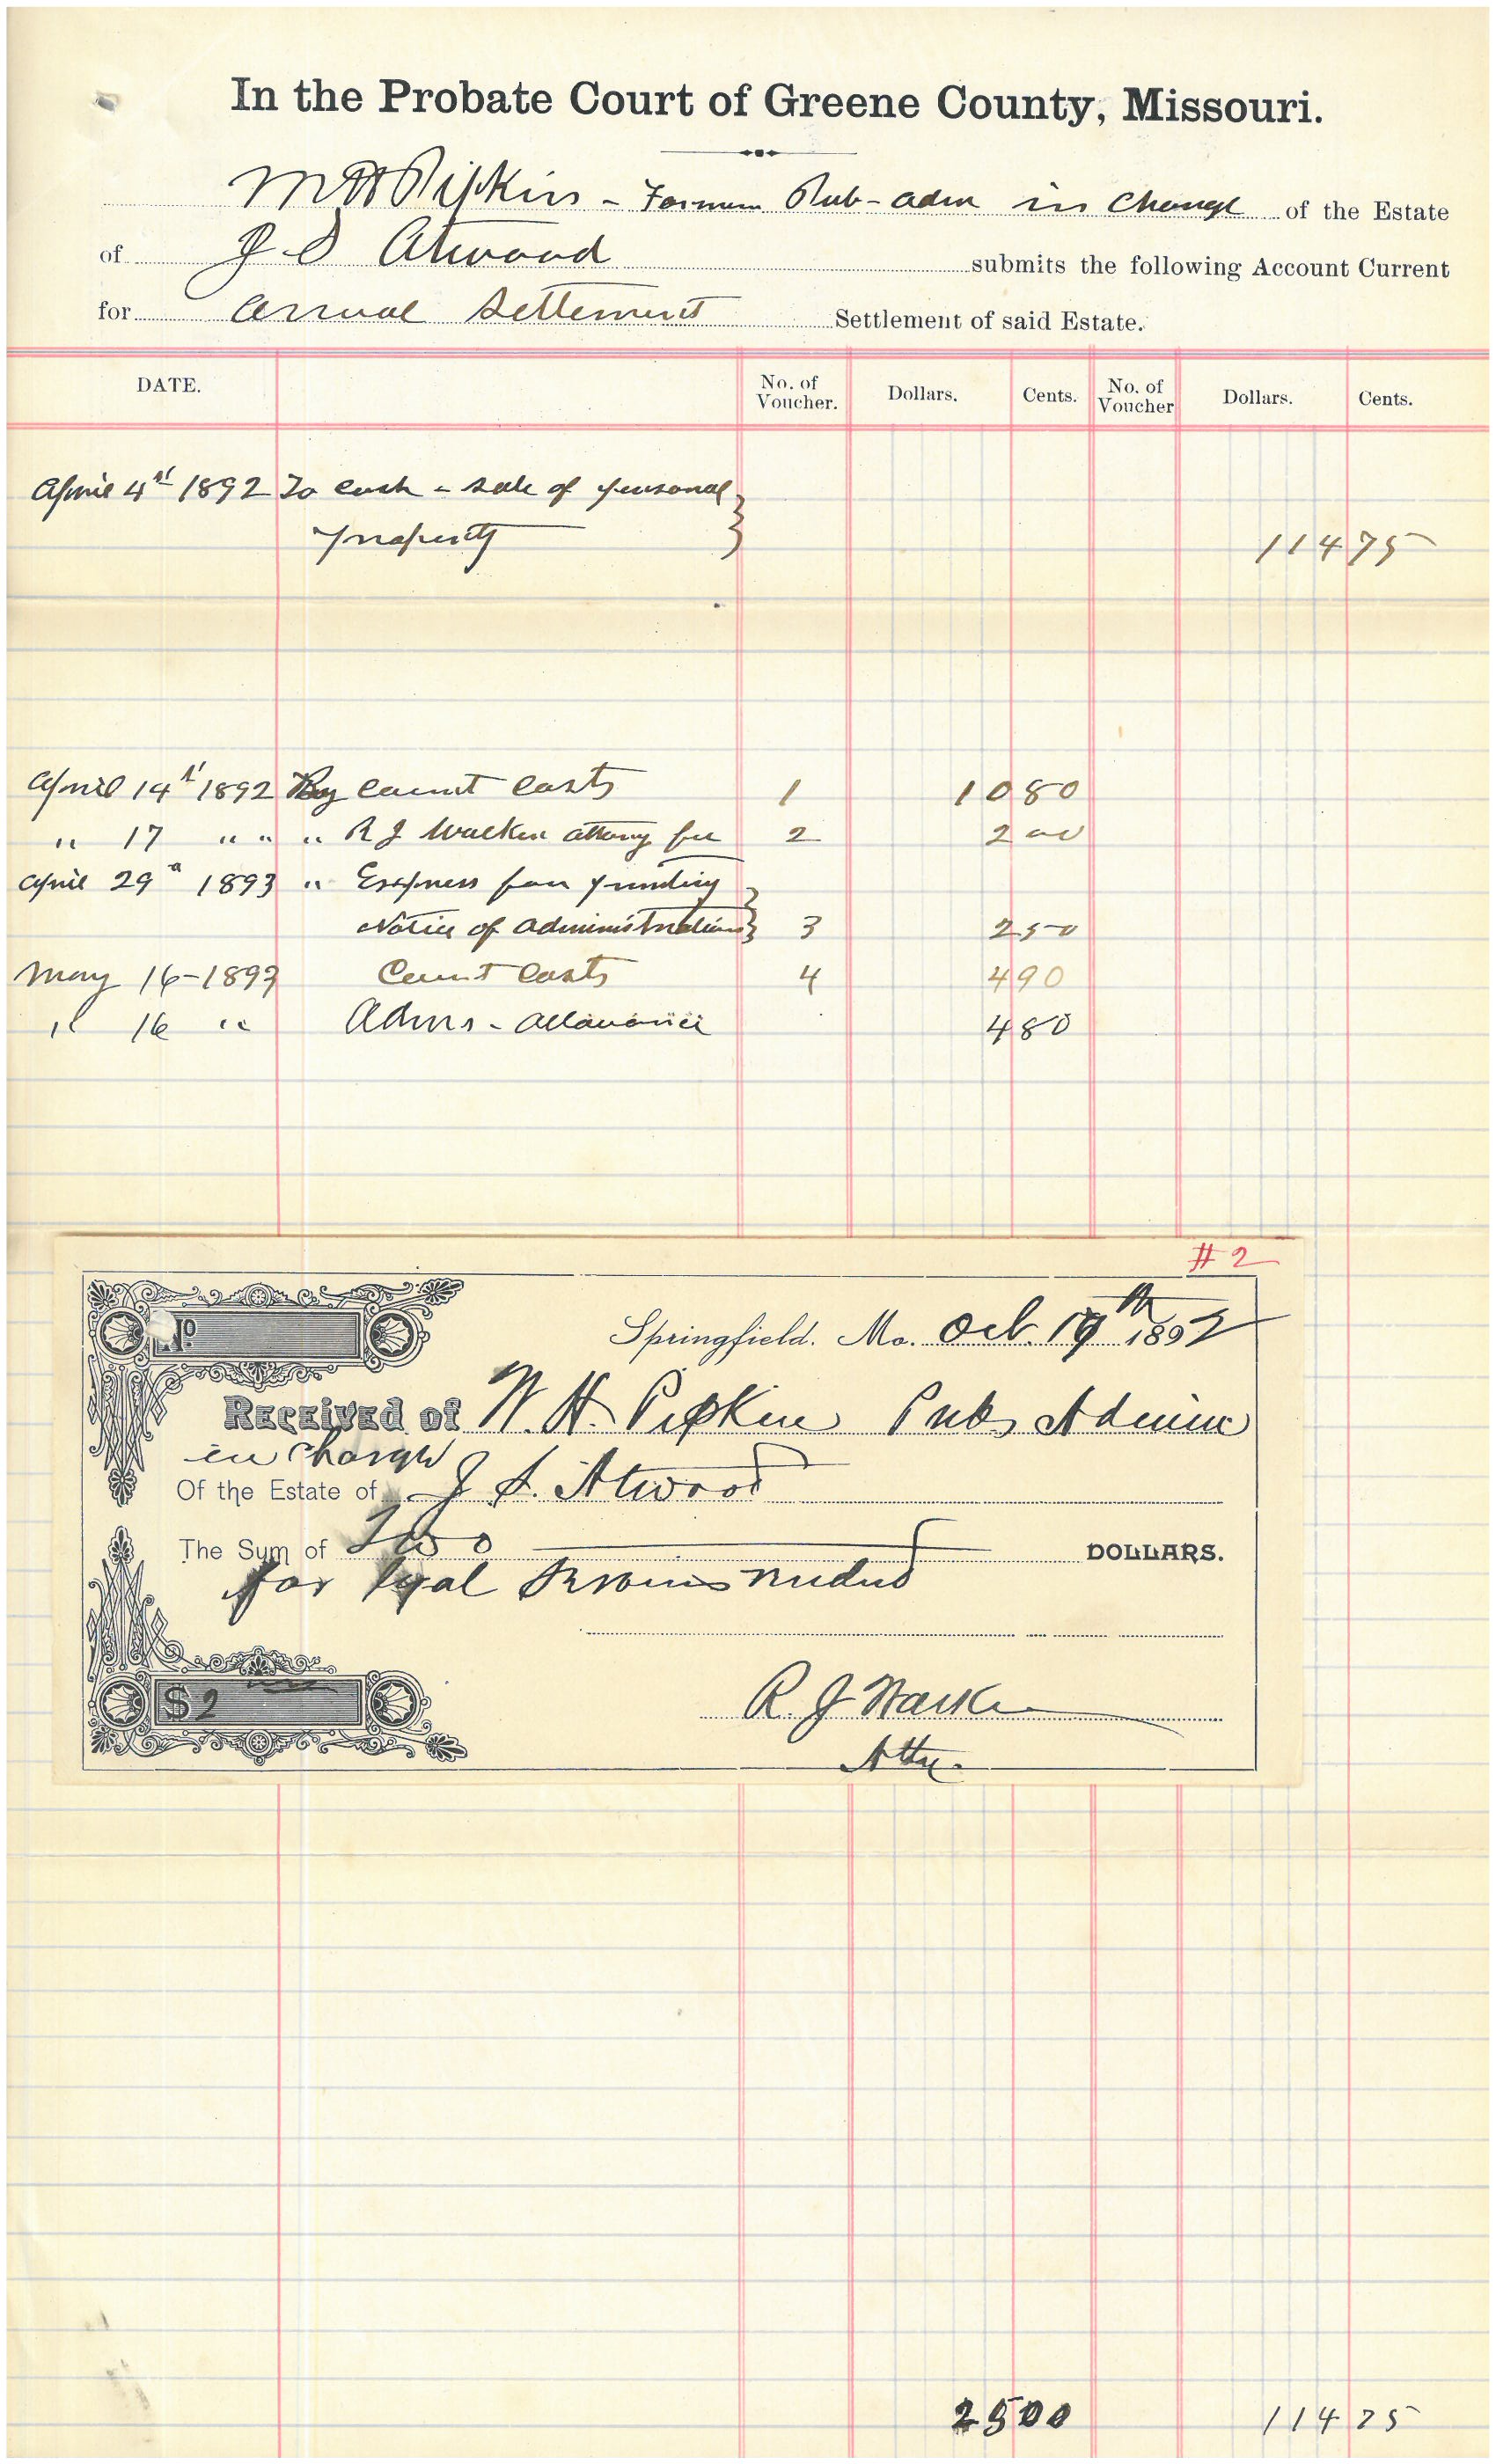 In the Probate Court of Greene County, Missouri.
W H Pipkin - Former Pub-adm in charge of the Estate
of J S Atwood submits the following Account Current
for Annual Settlement Settlement of said Estate.
DATE. No. of Voucher. Dollars. Cents. No. of Voucher Dollars. Cents.
April 4th 1892 To cash - sale of personal
property 114 75
April 14th 1892 By Court Costs 1 10 80
" 17 " " " R J Walker attorney fee 2 2 00
April 29th 1893 " Express for printing
Notice of administration 3 2 50
May 16-1893 Court Costs 4 4 90
" 16 " Adms - allowance 4 80
#2
No
Springfield. Mo. Oct. 19th 1892
Received of W. H. Pipkin Pub Admin
in charge
Of the Estate of J S. Atwood
The Sum of Two DOLLARS.
for legal services rendered
$2
R. J Walker
Atty.
25 00 114 75